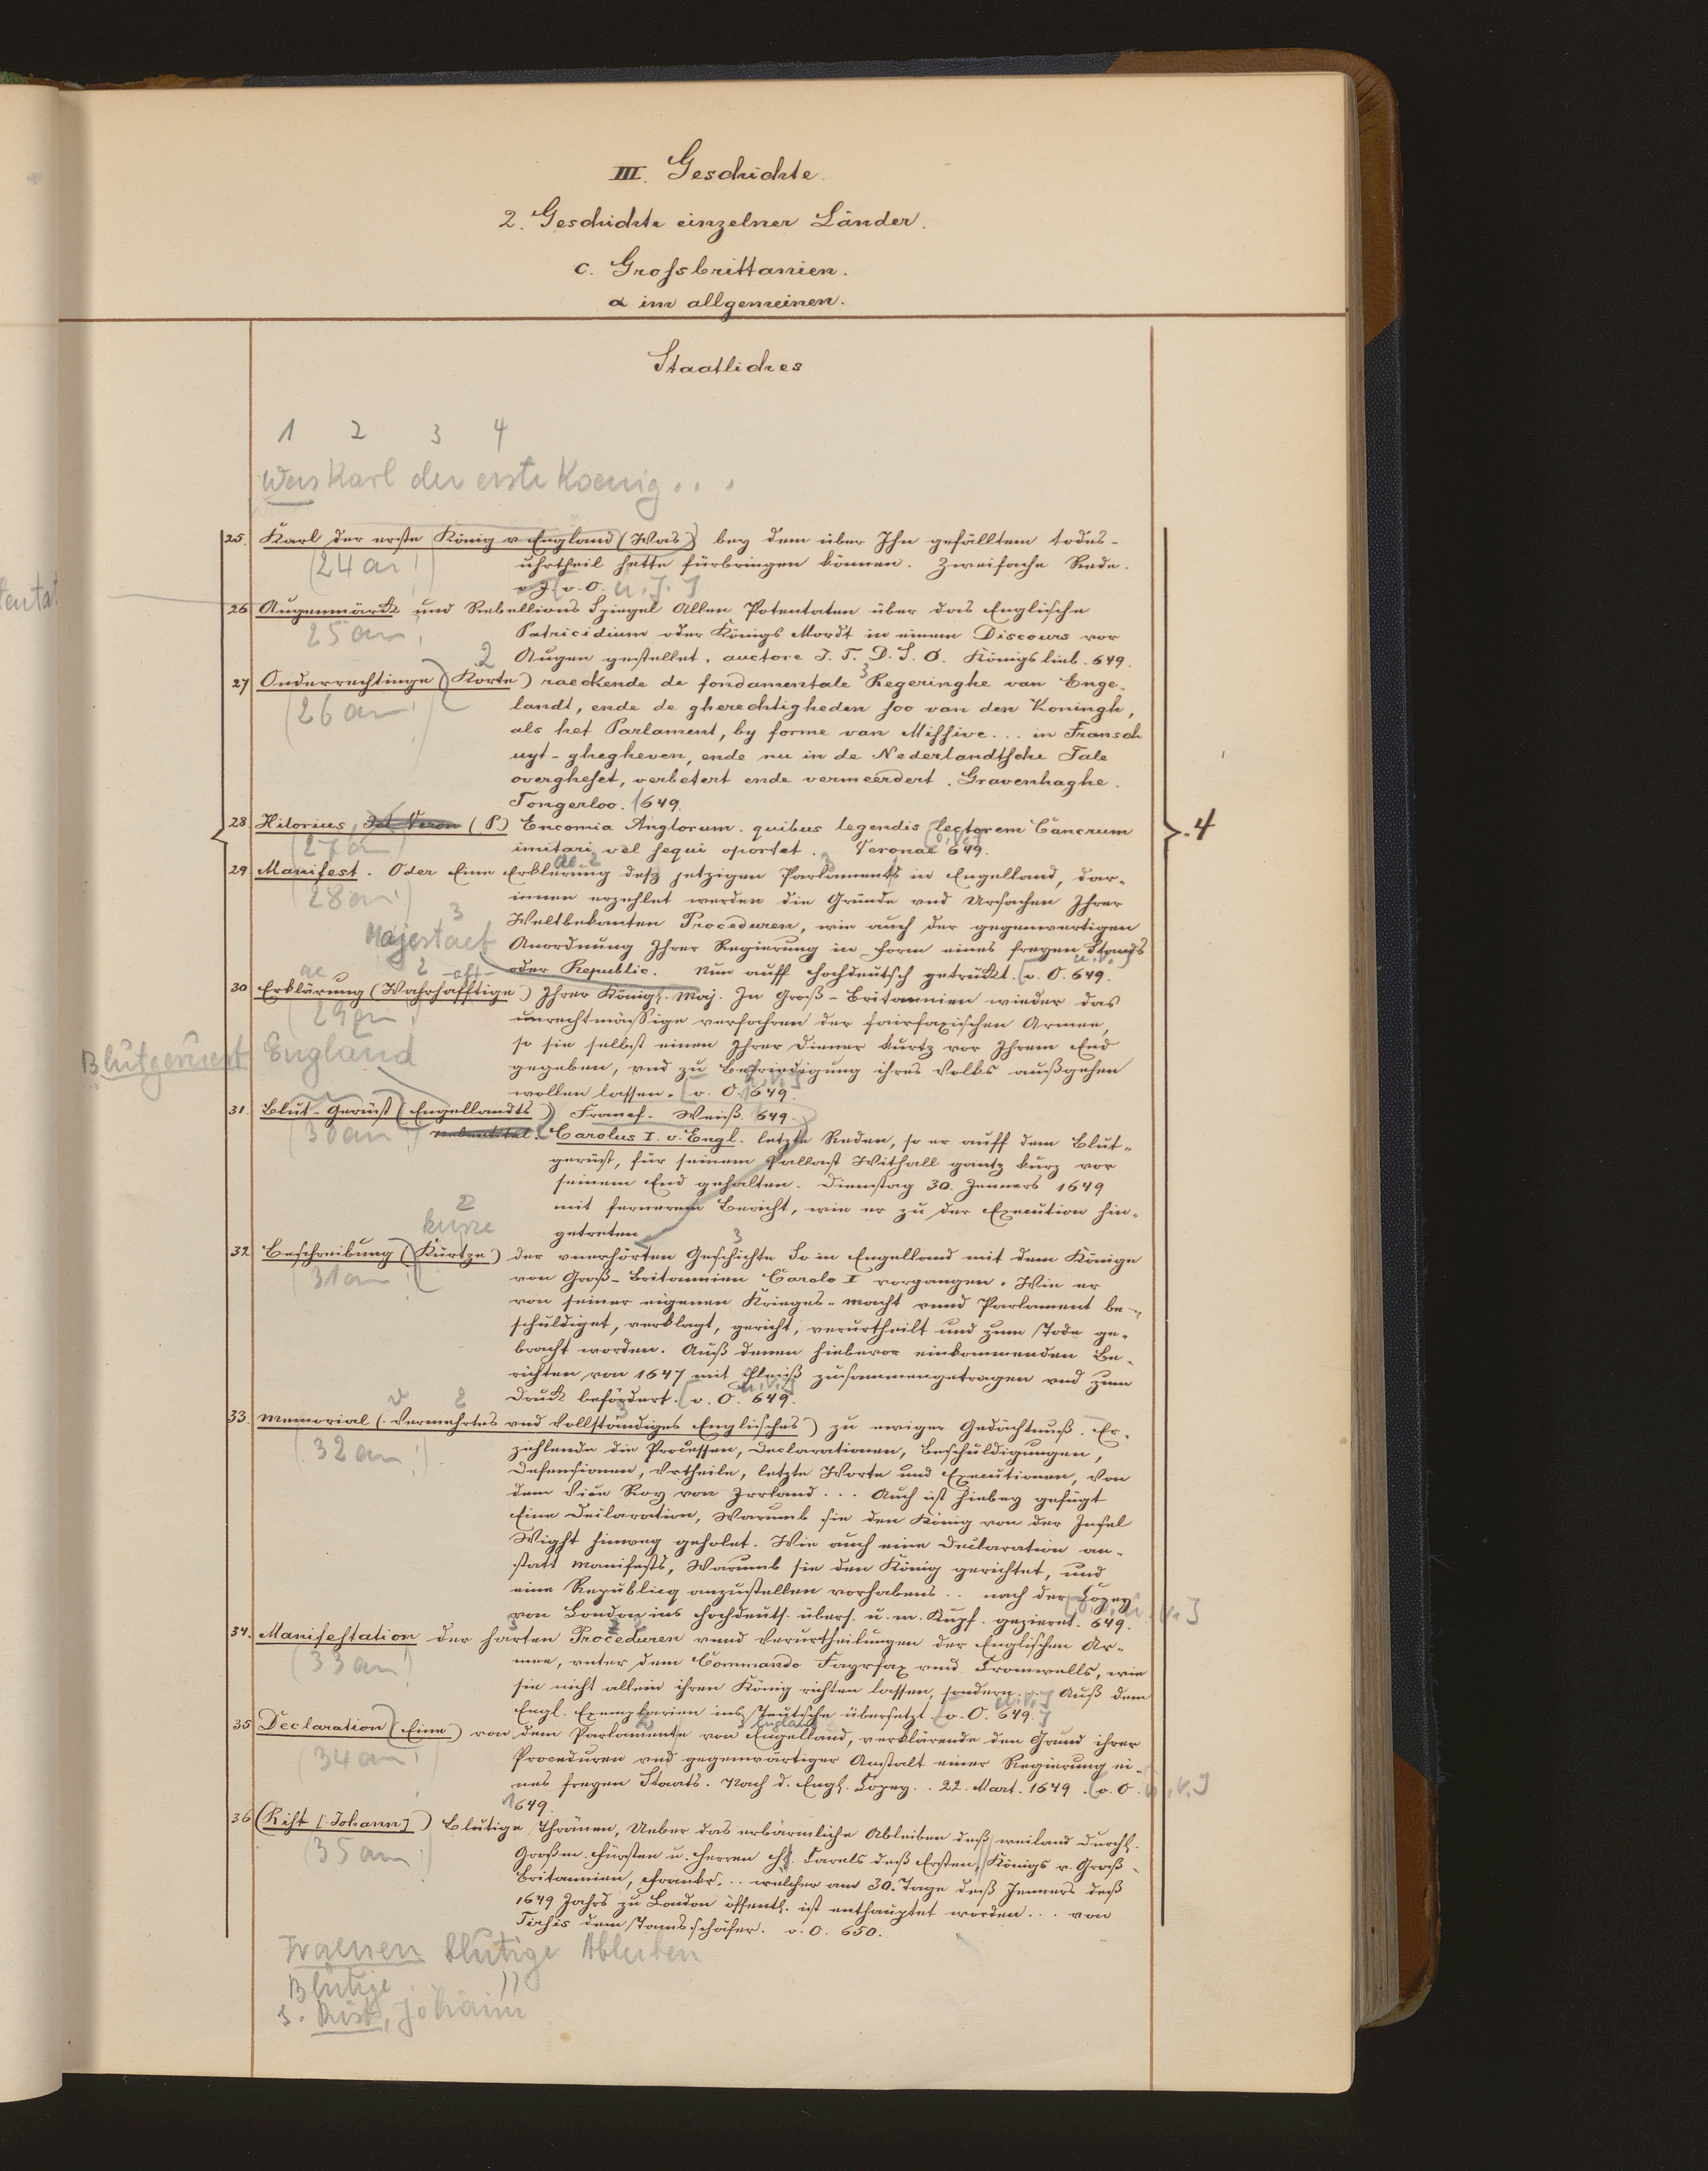 III. Geschichte.
2. Geschichte einzelner Länder.
c. Grossbrittanien.
α im allgemeinen.
Staatliches
1 2 3 4
Was Karl der erste Koenig . . .
25. Karl der erste (König v England (Was) bey dem über Ihn gefälltem todes-
(24 an!) uhrtheil hette fürbringen können. Zweifache Rede.
v. O. u. J.]
26 Augenmärck und Rebellions Spiegel Allen Potentaten über das Englische
25 an! Patricidium oder Königs Mordt in einem Discours vor
2 Augen gestellet. auctore J. T. D. S. O. Königslieb. 649.
27 Onderrechtinge (Korte) raeckende de fondamentale 3 Regeringhe van Enge-
(26 an!) landt, ende de gherechtigheden soo van den Koningh,
als het Parlament, by forme van Missive... in Fransch
uyt-ghegheven, ende nu in de Nederlandtsche Tale
overgheset, verbetert ende vermeerdert. Gravenhaghe.
Tongerloo. 1649.
28. Hilorius (P.) Encomia Anglorum. quibus legendis lectorem Cancrum
(27 an) imitari vel sequi oportet. Veronae 649.
29 Manifest. Oder Eine Erklärung desz jetzigen Parlaments in Engelland, dar-
(28 an!) innen erzehlet werden die Gründe vnd Ursachen Ihrer
3 Weltbekanten Proceduren, wie auch der gegenwertigen
Majestaet Anordnung Ihrer Regierung in Form eines freyen Stands
oder Republic. Nun auff Hochdeutsch getruckt. [v. O. 649.
ae 2 -aft-
30 Erklärung (Wahrhafftige) Ihrer Königl. Maj. In Groß-Britannien wieder das
(29 an!) unrechtmässige verfahren der fairfaxischen Armee,
England so sie selbst einen Ihrer Diener kurtz vor Ihrem End
Blutgeruest gegeben, vnd zu Befriedigung ihres Volks außgehen
wollen lassen. [v. O. 649.
31. Blut-Gerüst (Engellandts) Francf. Weiß. 649.
(30 an!) Carolus I. v. Engl. letzte Reden, so er auff dem Blut-
gerüst, für seinem Pallast Withall gantz kurz vor
seinem End gehalten. Dienstag 30. Jenners 1649
2 mit fernerem Bericht, wie er zu der Execution hin-
kurze getreten
32. Beschreibung (Kurtze) der vnerhörten Geschichte So in Engelland mit dem Könige
(31 an!) von Groß-Britannien Carolo I vorgangen. Wie er
von seiner eigenen Krieges-macht vnnd Parlament be-
schuldiget, verklagt, gericht, verurtheilt und zum Tode ge-
bracht worden. Auß denen hiebevor einkommenden Be-
richten von 1647 mit Fleiß zusammengetragen vnd zum
Druck befördert. [v. O. 649.
33. Memorial (Vermehrtes vnd vollständiges Englisches) zu ewiger Gedächtnuß. Er-
(32 an!) zehlende die Processen, Declarationen, Beschuldigungen,
Defensionen, Vrtheile, letzte Worte und Executionen, von
dem Vice Roy von Irrland... Auch ist hiebey gefügt
Eine Declaration, Warumb sie den König von der Insel
Wight hinweg geholet. Wie auch eine Declaration an-
statt Manifests, Warumb sie den König gerichtet, und
eine Republicq anzustellen vorhabens.. nach der Copey
von London ins Hochdeuts. übers. u. m. Kupf. gezieret. 649.
34. Manifestation der harten Proceduren vnnd Verurtheilungen der Englischen Ar-
(33 an!) mee, vnter dem Commando Fayrfax vnd Cromwells, wie
sie nicht allein ihren König richten lassen, sondern... Auß dem
Engl. Exemplarien ins Teutsche übersetzt. [v. O. 649.]
35 Declaration (Eine) von dem Parlamente von Engelland, verklärende den Grund ihrer
(34 an!) Proceduren vnd gegenwärtiger Anstalt einer Regierung ei-
nes freyen Staats. Nach d. Engl. Copey.. 22. Mart. 1649. [v. O.
1649.
36 (Rist [Johann]) Blutige Thränen, Ueber das erbärmliche Ableiben deß weiland Durchl.
(35 an!) Großm. Fürsten u. Herren H. Carels deß Ersten, Königs v. Groß-
Britannien, Frankr... welcher am 30. Tage deß Jenners deß
1649 Jahrs zu London öffentl. ist enthauptet worden... von
Tirsis dem Tamsschäfer. v. O. 650.
Traenen blutige Ableiben
Blutige
s. Rist, Johann
4